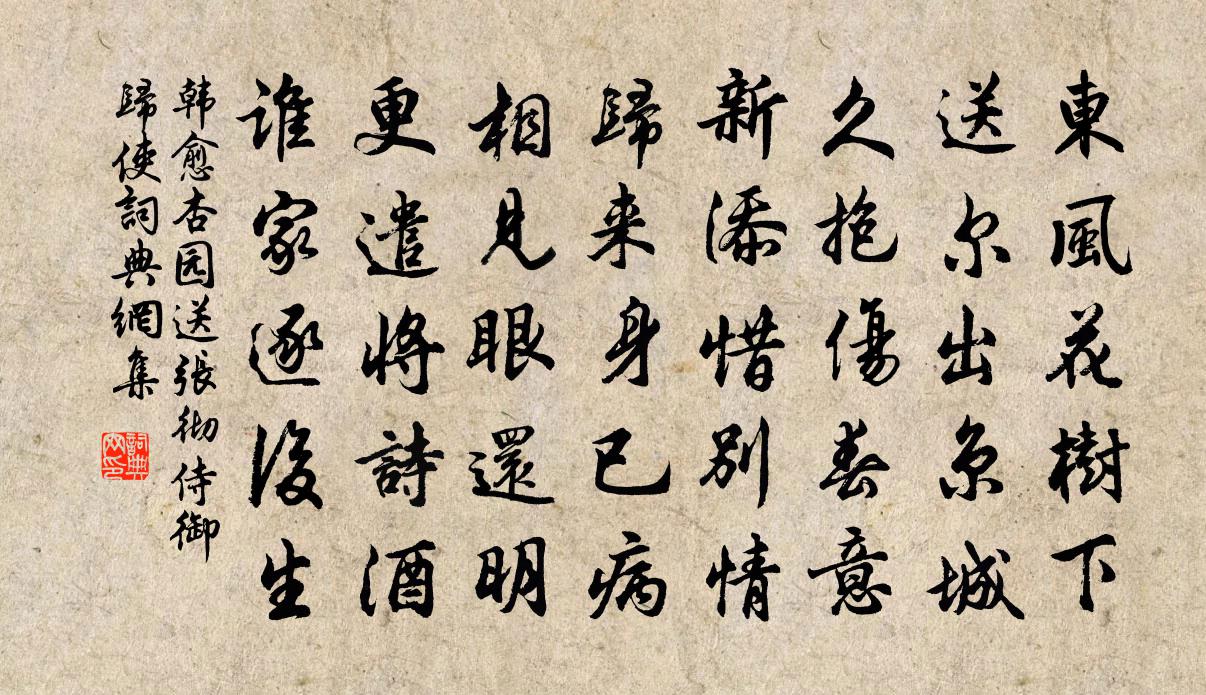 東風花樹下
送尔出京城
久抱傷春意
新添惜别情
歸来身已病
相見眼還明
更遣將詩酒
谁家逐後生
韩愈杏园送張彻侍御
歸使詞典網集
詞典
网印